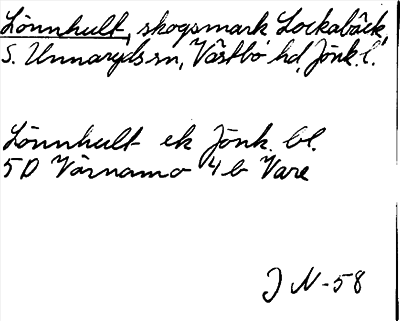 Lönnhult, skogsmark Lockabäck,
S. Unnaryds sn, Västbo hd, Jönk. l.
Lönnhult ek Jönk. bl.
5D Värnamo 4b Vare
J N-58